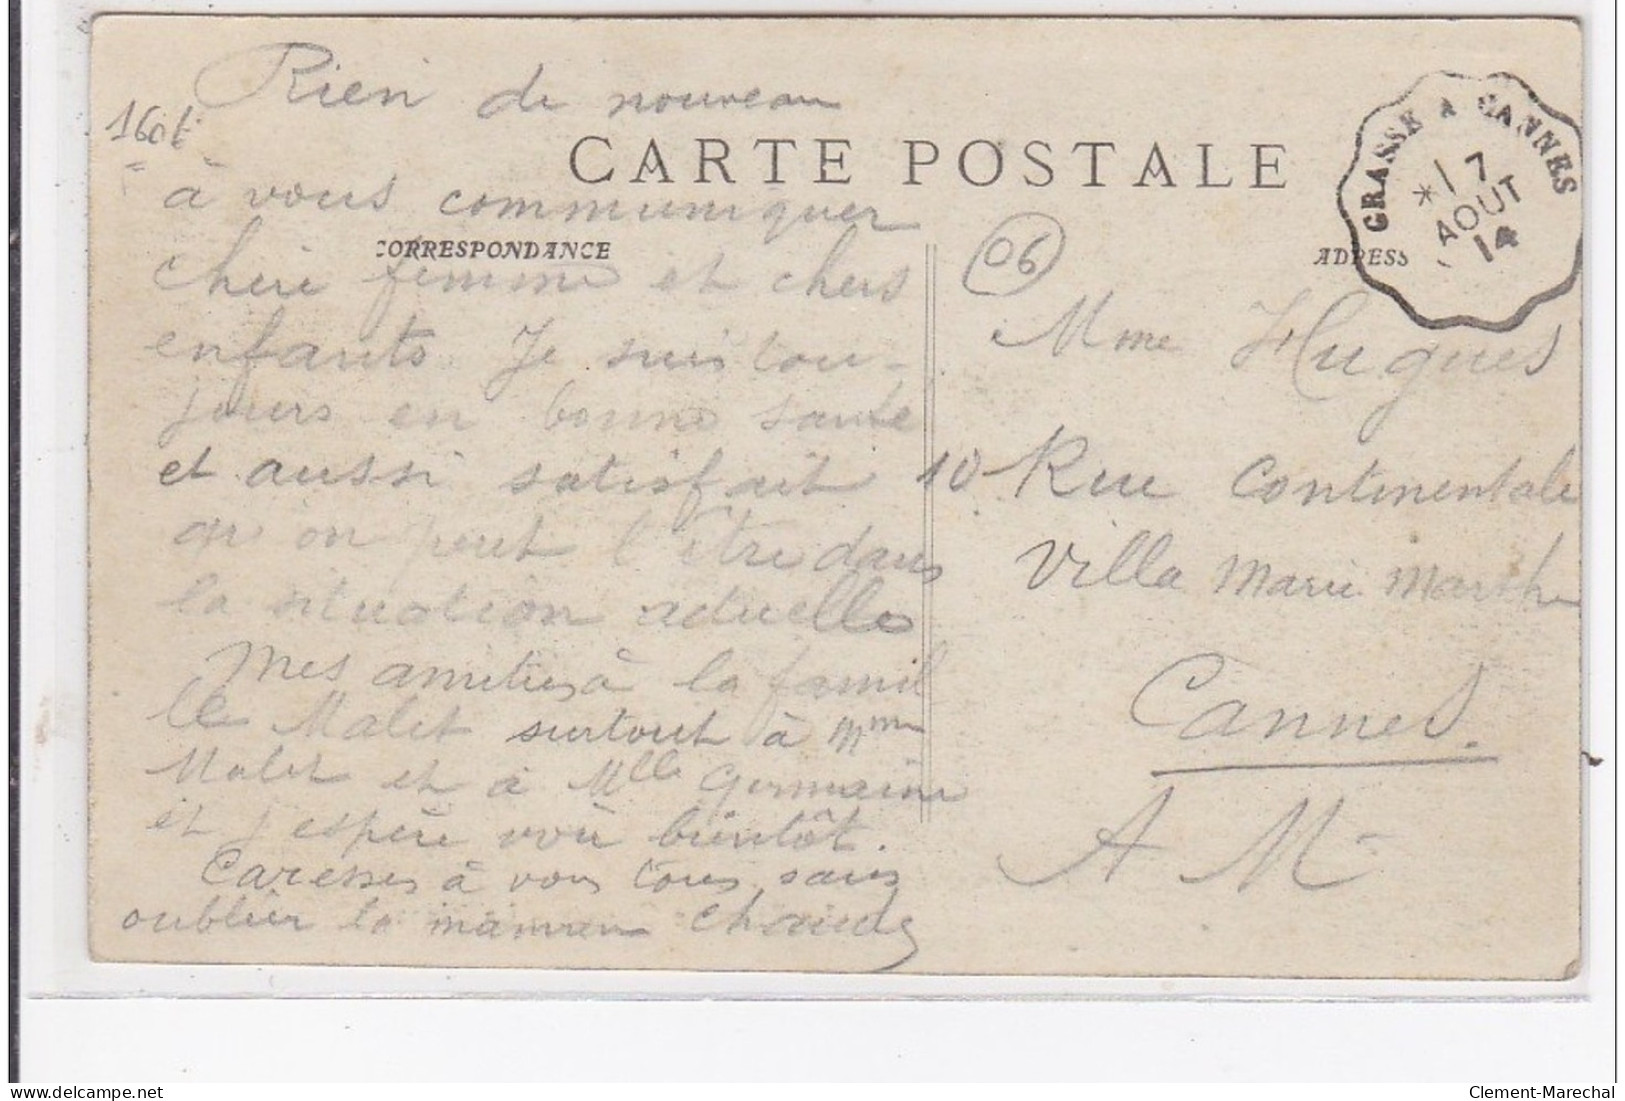 Rien de nouveau
160t
CARTE POSTALE
à vous communiquer
CORRESPONDANCE
chère femme et chers
enfants Je suis tou-
jours en bonne santé
et aussi satisfait
qu'on peut l'être dans
la situation actuelle
Mes amitiés à la famil
lle Malet surtout à Mme
Malet et à Mlle Germaine
et j'espère voir bientôt.
Caresses à vous tous sans
oublier la
06
ADRESS
GRASSE A CANNES
*17
AOUT
14
Mme Hugues
10 Rue Continentale
Villa Marie Marthe
Cannes.
A M-
delcampe.net
Clement-Marechal